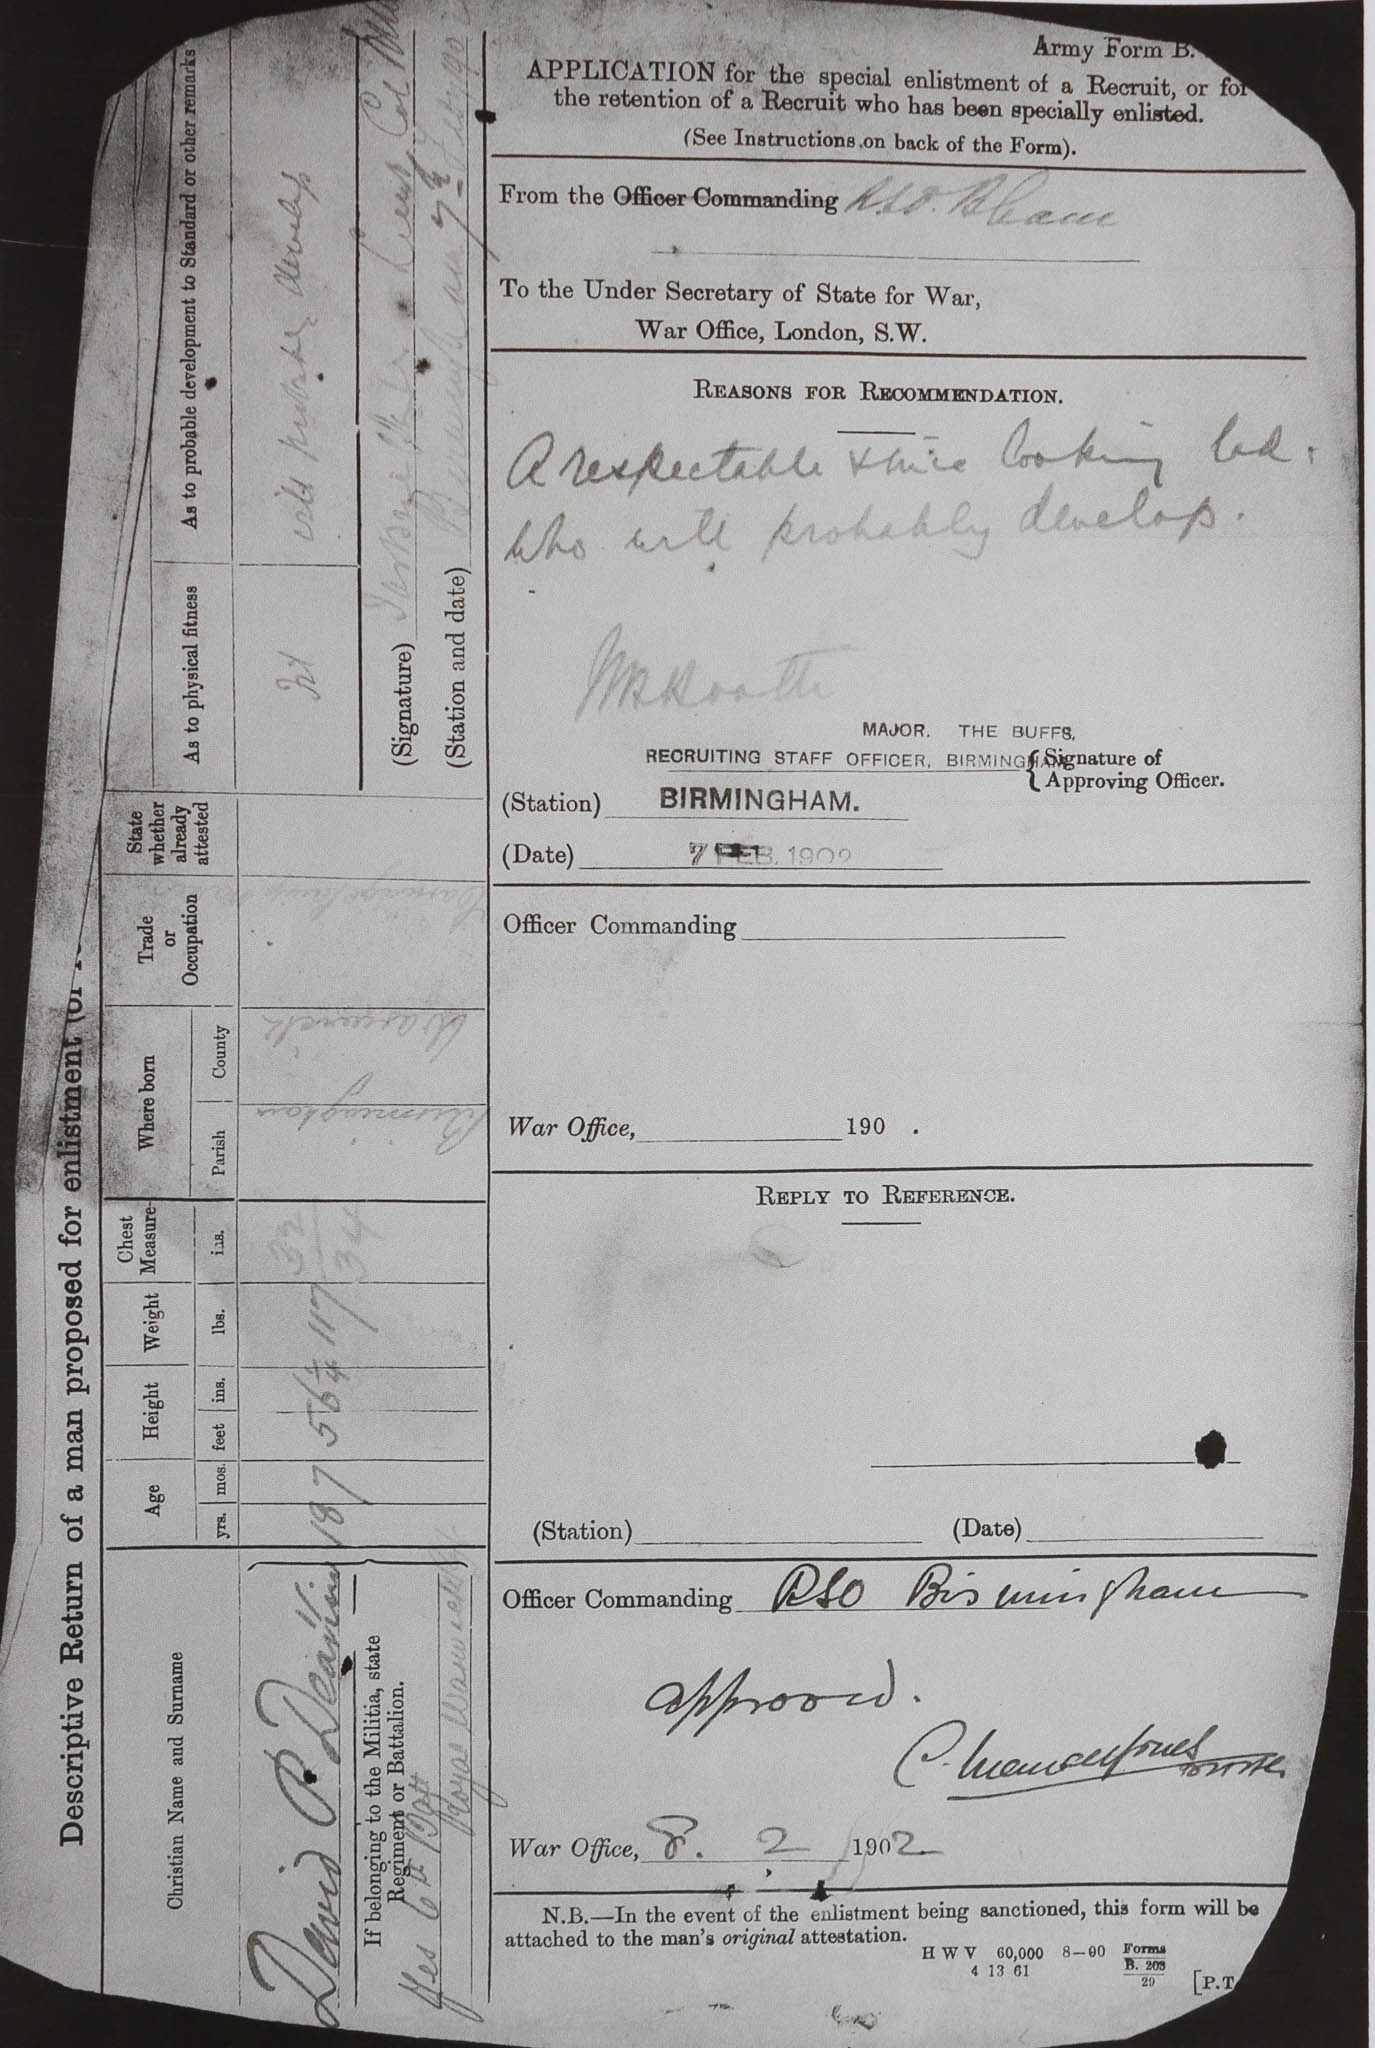 Army Form B.
APPLICATION for the special enlistment of a Recruit, or for
the retention of a Recruit who has been specially enlisted.
(See Instructions on back of the Form).
From the Officer Commanding RSO. B'ham
To the Under Secretary of State for War,
War Office, London, S.W.
REASONS FOR RECOMMENDATION.
A respectable & nice looking lad.
who will probably develop.
MAJOR. THE BUFFS,
RECRUITING STAFF OFFICER, BIRMINGHAM
Signature of
Approving Officer.
(Station) BIRMINGHAM.
(Date) 7 FEB. 1902
Officer Commanding
War Office, 190 .
REPLY TO REFERENCE.
(Station) (Date)
Officer Commanding RSO Birmingham
approved.
War Office, 8. 2 1902
N.B.—In the event of the enlistment being sanctioned, this form will be
attached to the man's original attestation.
H W V 60,000 8—00 Forms
4 13 61 B. 203
29
[P.T
Descriptive Return of a man proposed for enlistment (or
Christian Name and Surname
Age
yrs. mos.
Height
feet ins.
Weight
lbs.
Chest
Measure-
ins.
Where born
Parish County
Trade
or
Occupation
State
whether
already
attested
As to physical fitness
As to probable development to Standard or other remarks
David P. Deakin 18 7 5 6 1/4 117 32
34
Birmingham Warwick
fit
will probably develop
If belonging to the Militia, state
Regiment or Battalion.
Yes 6th Batt
Royal Warwick
(Signature) Lieut Col
(Station and date) Birmingham 7th